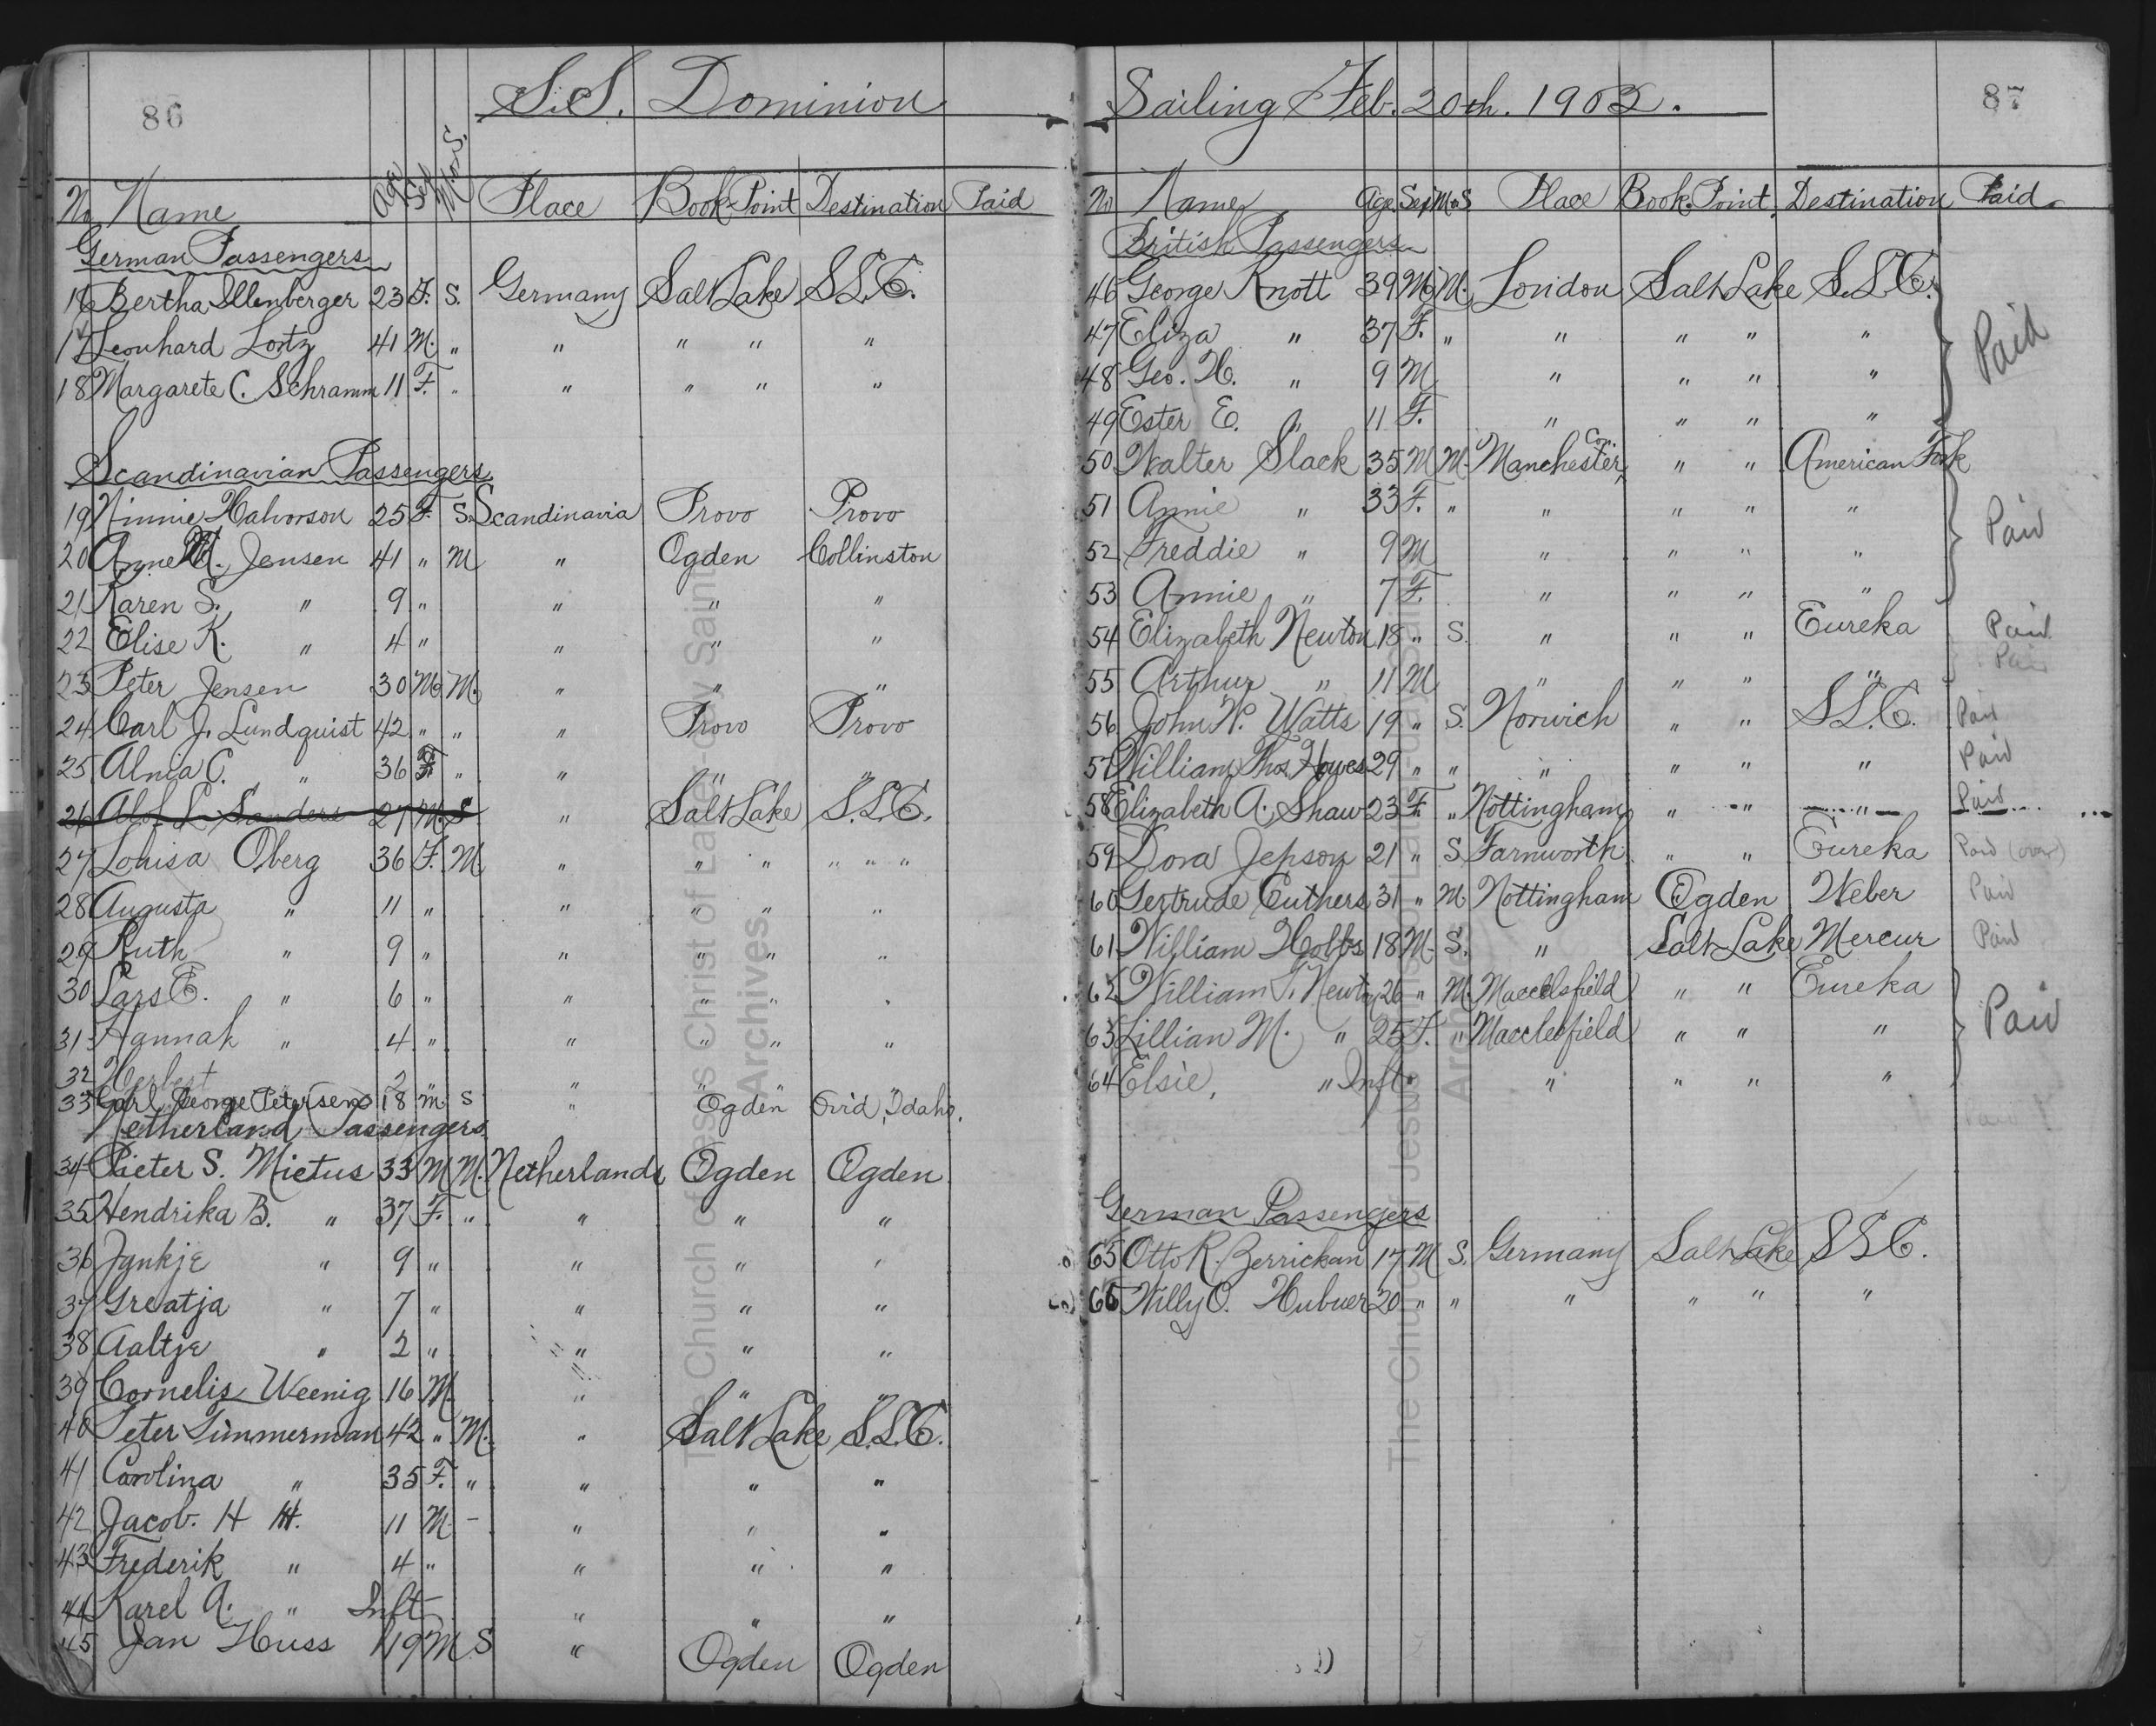 86
S.S. Dominion
No. Name Age Sex M or S. Place Book Point Destination Paid
German Passengers
16 Bertha Illenberger 23 F. S. Germany Salt Lake S.L.C.
17 Leonhard Lortz 41 M. " " " " "
18 Margarete C. Schramm 11 F. " " " " "
Scandinavian Passengers
19 Ninnie Halvorson 25 F. S. Scandinavia Provo Provo
20 Anne M. Jensen 41 " M " Ogden Collinston
21 Karen S. " 9 " " " "
22 Elise K. " 4 " " " "
23 Peter Jensen 30 M M. " " "
24 Carl J. Lundquist 42 " " " Provo Provo
25 Alma C. " 36 F. " " " "
26 L. Sanders 27 M. S " Salt Lake S.L.C.
27 Louisa Oberg 36 F. M " " " " " "
28 Augusta " 11 " " " " "
29 Ruth " 9 " " " " "
30 Lars E. " 6 " " " " "
31 Hannah " 4 " " " " "
32 Herbert 2 " " " "
33 Carl George Petersen 18 m s " Ogden Ovid, Idaho.
Netherland Passengers
34 Pieter S. Mietus 33 M M. Netherlands Ogden Ogden
35 Hendrika B. " 37 F. " " " "
36 Jankje " 9 " " " "
37 Greatja " 7 " " " "
38 Aaltje " 2 " " " "
39 Cornelis Weenig 16 M. " " "
40 Peter Timmerman 42 " M. " Salt Lake S.L.C.
41 Carolina " 35 F. " " " "
42 Jacob. H 11 M - " " "
43 Frederik " 4 " " " "
44 Karel A. " Inft " " "
45 Jan Huss 19 M S " Ogden Ogden
Sailing Feb. 20th. 1902.
87
No Name Age Sex M or S Place Book Point Destination Paid
British Passengers
46 George Knott 39 M M. London Salt Lake S.L.C. Paid
47 Eliza " 37 F. " " " " "
48 Geo. H. " 9 M " " " "
49 Ester E. " 11 F. " " " "
50 Walter Slack 35 M M. Manchester Co. " " American Fork Paid
51 Annie " 33 F. " " " " "
52 Freddie " 9 M " " " "
53 Annie " 7 F. " " " "
54 Elizabeth Newton 18 " S. " " " Eureka Paid
55 Arthur " 11 M " " " " Paid
56 John W. Watts 19 " S. Norwich " " S.L.C. Paid
57 William Thos. Howes 29 " " " " " " Paid
58 Elizabeth A. Shaw 23 F. " Nottingham " " " Paid
59 Dora Jepson 21 " S Farnworth " " Eureka Paid (over)
60 Gertrude Cuthers 31 " M Nottingham Ogden Weber Paid
61 William Hobbs 18 M. S. " Salt Lake Mercur Paid
62 William T. Newton 26 " M. Macclesfield " " Eureka Paid
63 Lillian M. " 25 F. " Macclesfield " " "
64 Elsie, " Inft. " " " "
German Passengers
65 Otto R. Berrickan 17 M S. Germany Salt Lake S.L.C.
66 Willy O. Hubner 20 " " " " " "
The Church of Jesus Christ of Latter-day Saints
Archives
The Church of Jesus Christ of Latter-day Saints
Archives